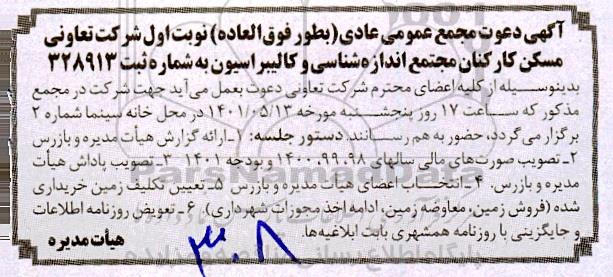 آگهی دعوت مجمع عمومی عادی (بطور فوق العاده) نوبت اول شرکت تعاونی
مسکن کارکنان مجتمع اندازه شناسی و کالیبراسیون به شماره ثبت ۳۲۸۹۱۳
بدینوسیله از کلیه اعضای محترم شرکت تعاونی دعوت بعمل می آید جهت شرکت در مجمع
مذکور که ساعت ۱۷ روز پنجشنبه مورخه ۱۴۰۱/۰۵/۱۳ در محل خانه سینما شماره ۲
برگزار می گردد، حضور به هم رسانند. دستور جلسه: ۱-ارائه گزارش هیأت مدیره و بازرس
۲-تصویب صورت‌های مالی سالهای ۱۴۰۰،۹۹،۹۸ و بودجه ۱۴۰۱ ۳-تصویب پاداش هیأت
مدیره و بازرس. ۴-انتخاب اعضای هیأت مدیره و بازرس ۵-تعیین تکلیف زمین خریداری
شده (فروش زمین، معاوضه زمین، ادامه اخذ مجوزات شهرداری) ۶-تعویض روزنامه اطلاعات
و جایگزینی با روزنامه همشهری بابت ابلاغیه ها.
هیأت مدیره
ParsNamadData